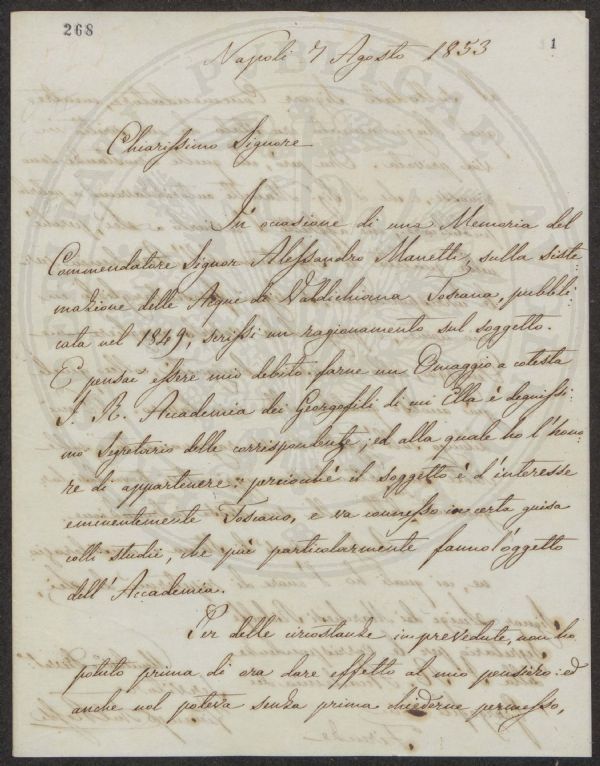 268
1
Napoli 7 Agosto 1853
Chiarissimo Signore
In occasione di una Memoria del
Commendatore Signor Alessandro Manetti, sulla siste
mazione delle Acque di Valdichiana Toscana, pubbli:
cata nel 1849, scrissi un ragionamento sul soggetto.
E pensai essere mio debito farne un Omaggio a cotesta
I. R. Accademia dei Georgofili di cui Ella è degnissi:
mo Segretario delle corrispondenze, ed alla quale ho l'hono:
re di appartenere: perciochè il soggetto è d'interesse
eminentemente Toscano, e va connesso in certa guisa
colli studii, che più particolarmente fanno l'oggetto
dell'Accademia.
Per delle circostanze imprevedute, non ho
potuto prima di ora dare effetto al mio pensiero: ed
anche nol poteva senza prima chiederne permesso,